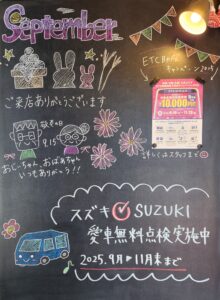 September
ETC
キャンペーン2025
ご来店ありがとうございます
10,000円
敬老の日
9.15
おじいちゃん、おばあちゃん
いつもありがとう!!
詳しくはスタッフまで
スズキ SUZUKI
愛車無料点検実施中
2025.9月▶11月末まで